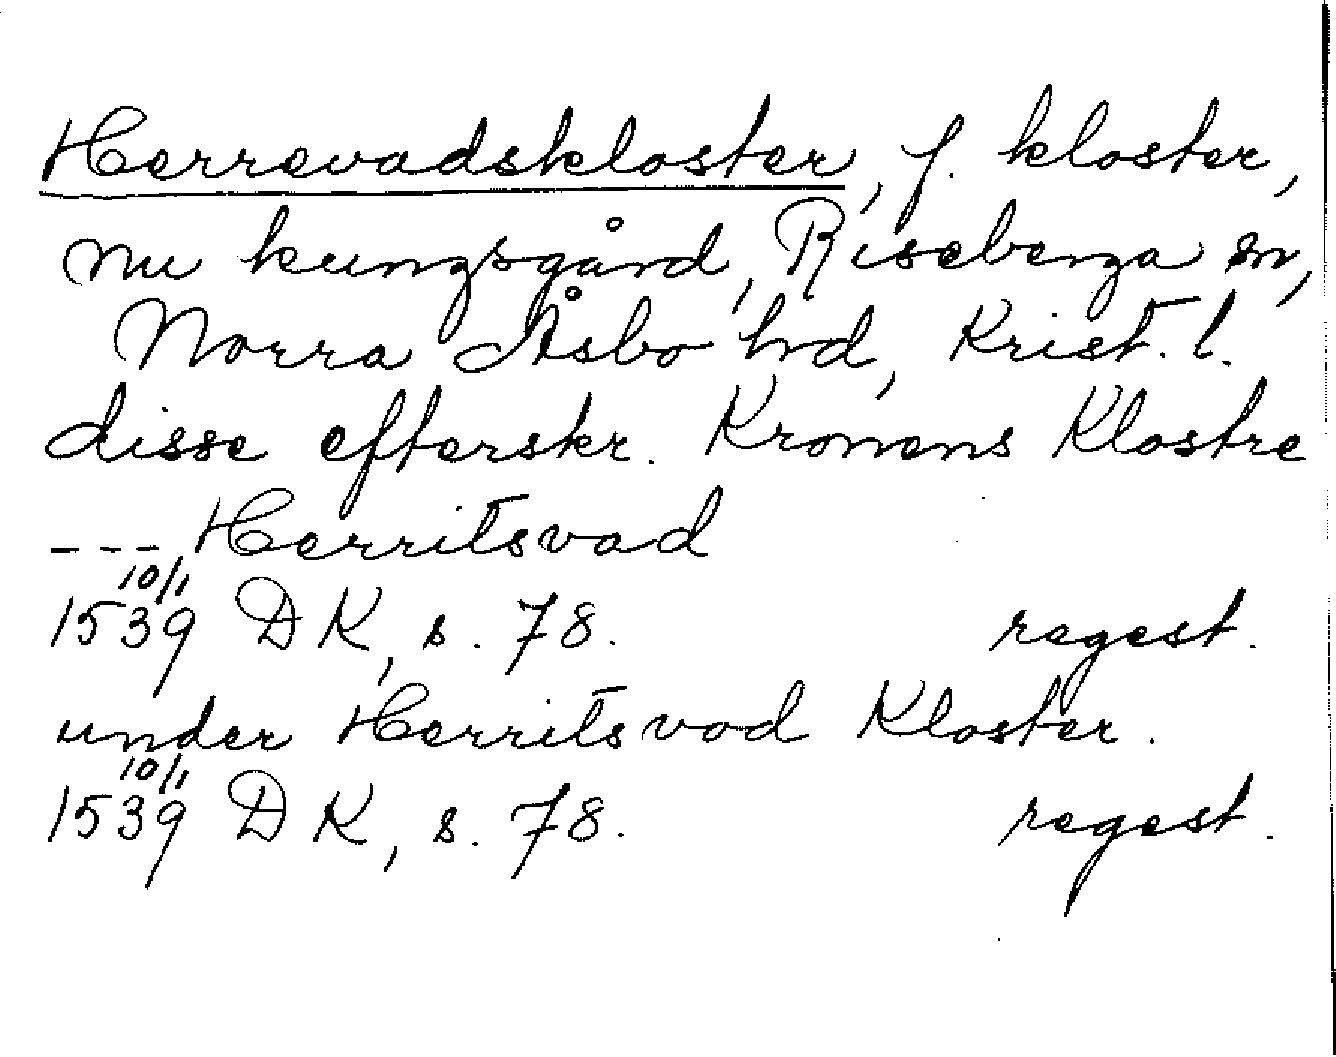 Herrevadskloster, f. kloster,
nu kungsgård, Riseberga sn,
Norra Åsbo hd, Krist. l.
disse efterskr. Kronens Klostre
--- Herritsvad
10/1
1539 DK, s. 78. regest.
under Herritsvod Kloster.
10/1
1539 DK, s. 78. regest.